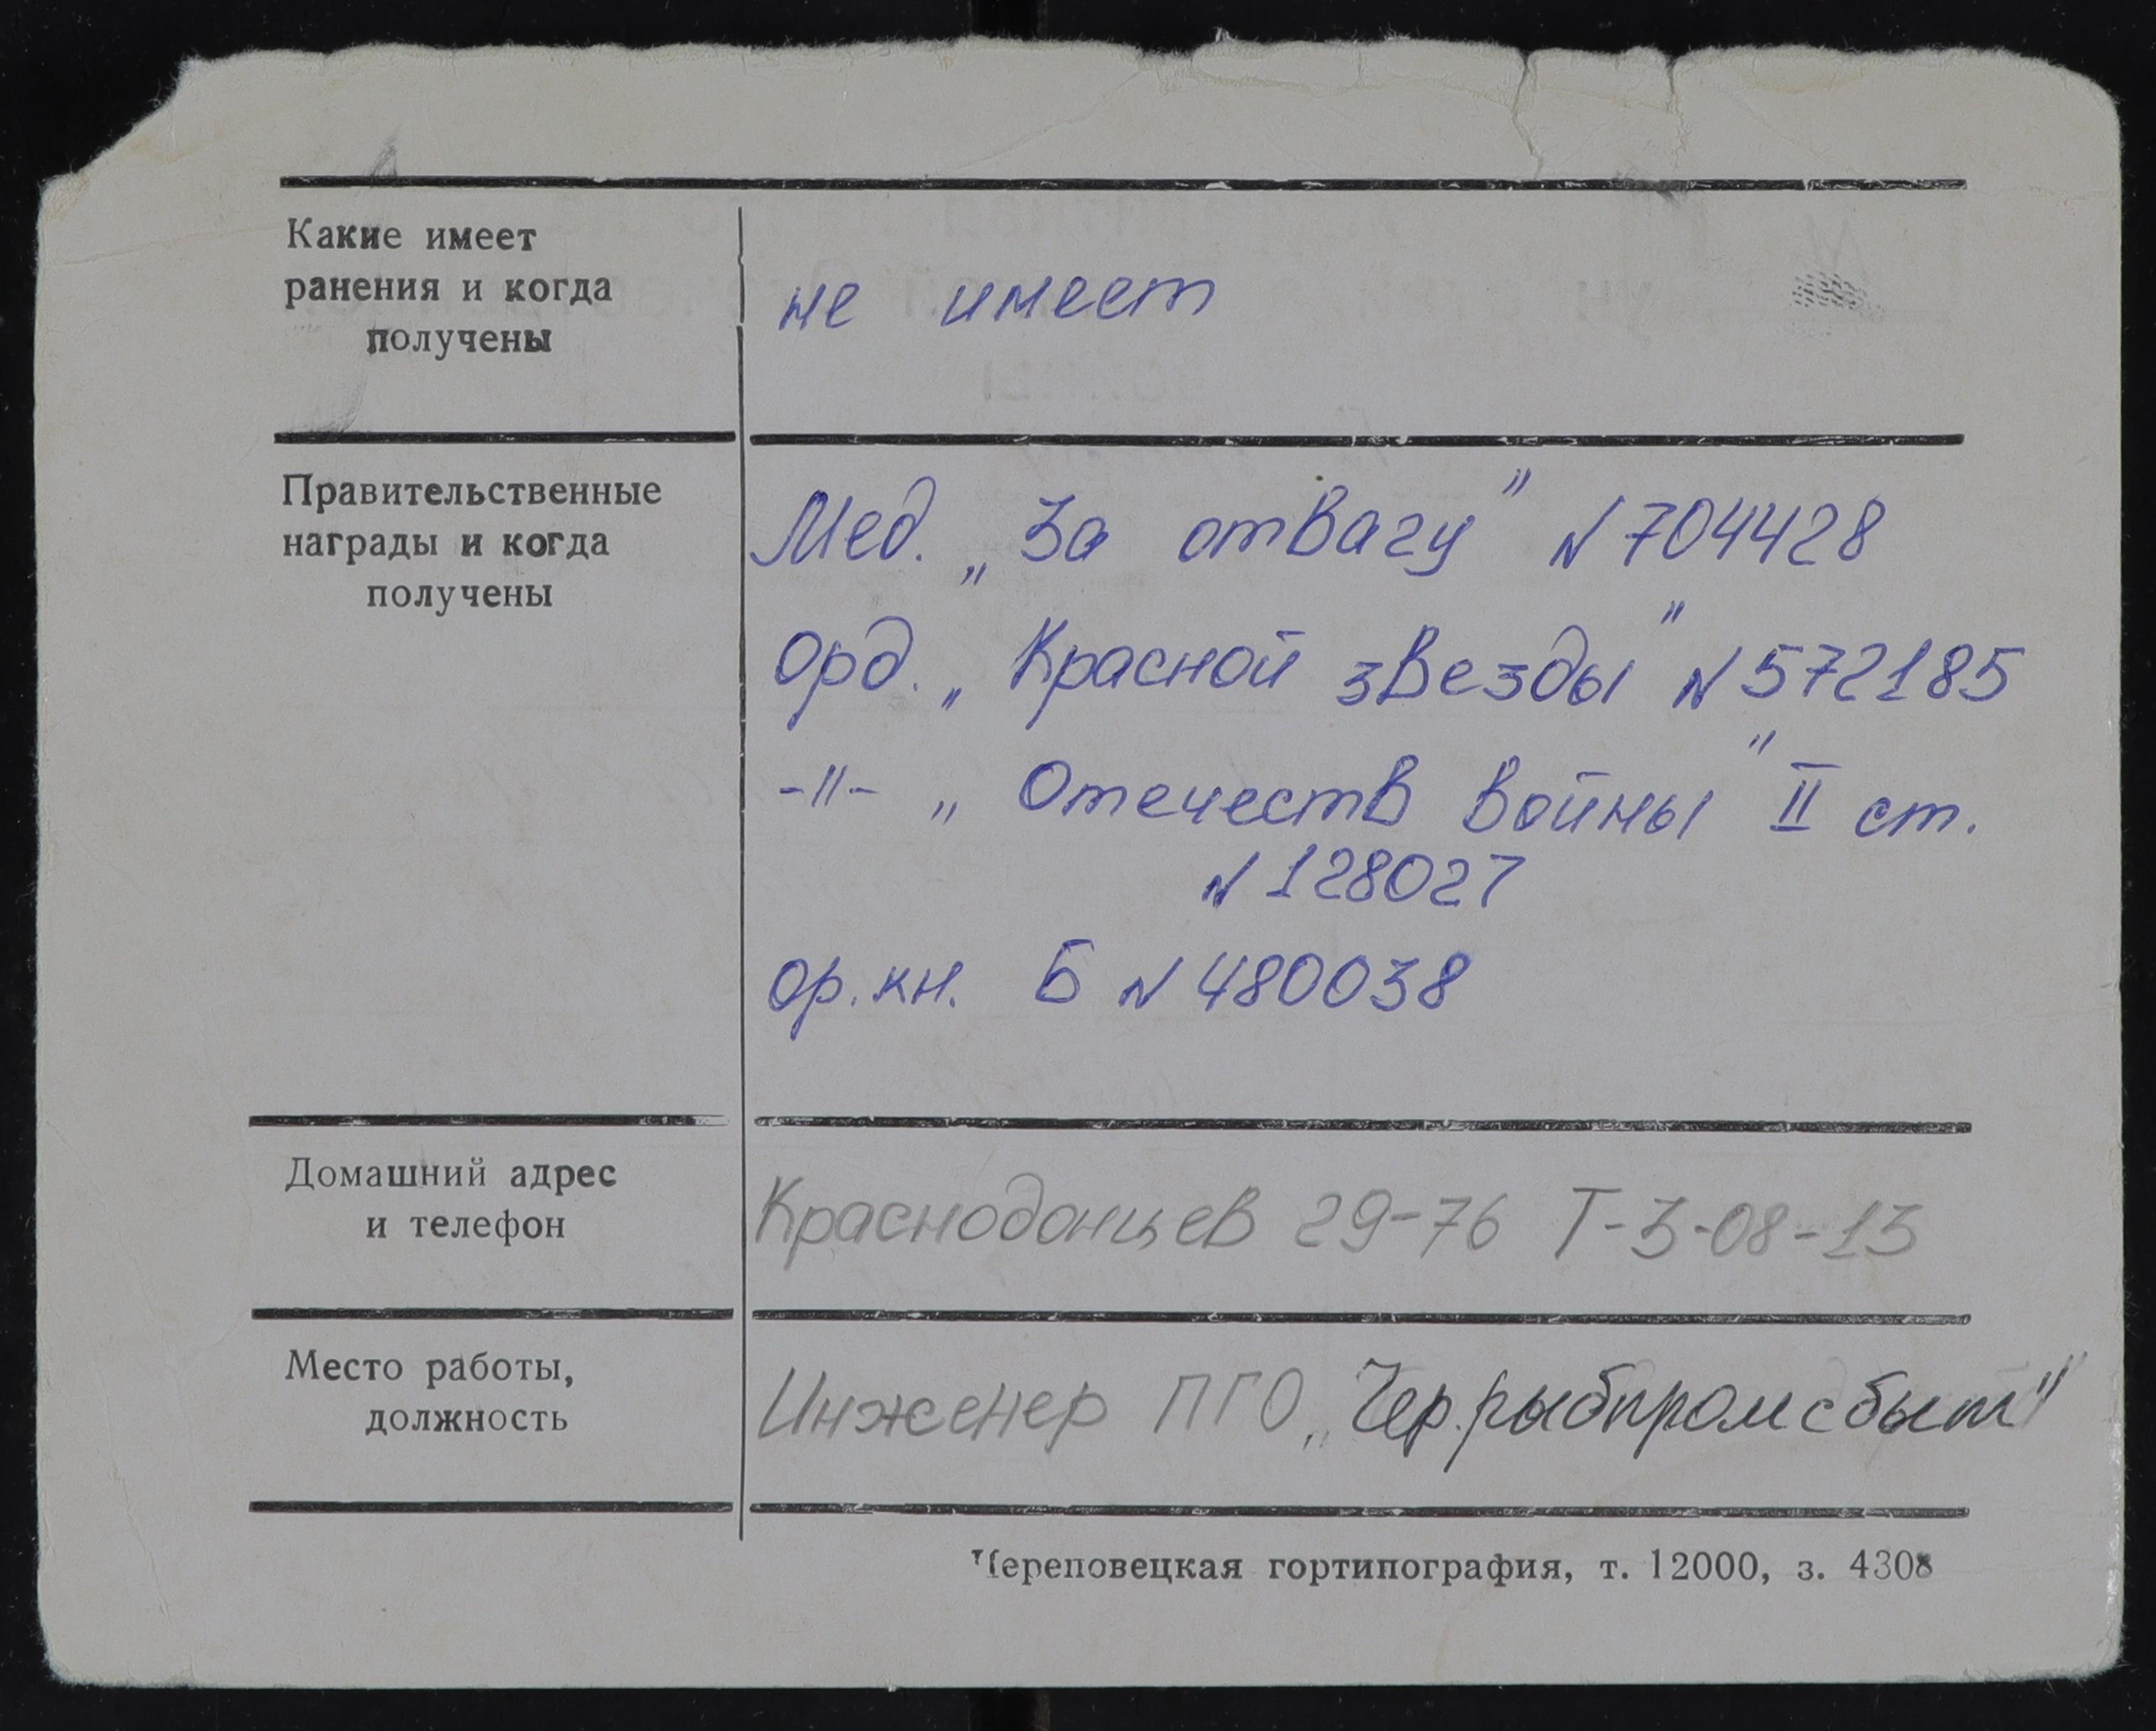 Какие имеет
ранения и когда
получены
не имеет
Правительственные
награды и когда
получены
Мед. „За отвагу" N 704428
Орд. „Красной звезды" N 572185
-II- „Отечеств войны" II ст.
N 128027
ор. кн. Б N 480038
Домашний адрес
и телефон
Краснодонцев 29-76 Т-3-08-13
Место работы,
должность
Инженер ПГО „Чер.рыбпромсбыт"
Череповецкая гортипография, т. 12000, з. 4308